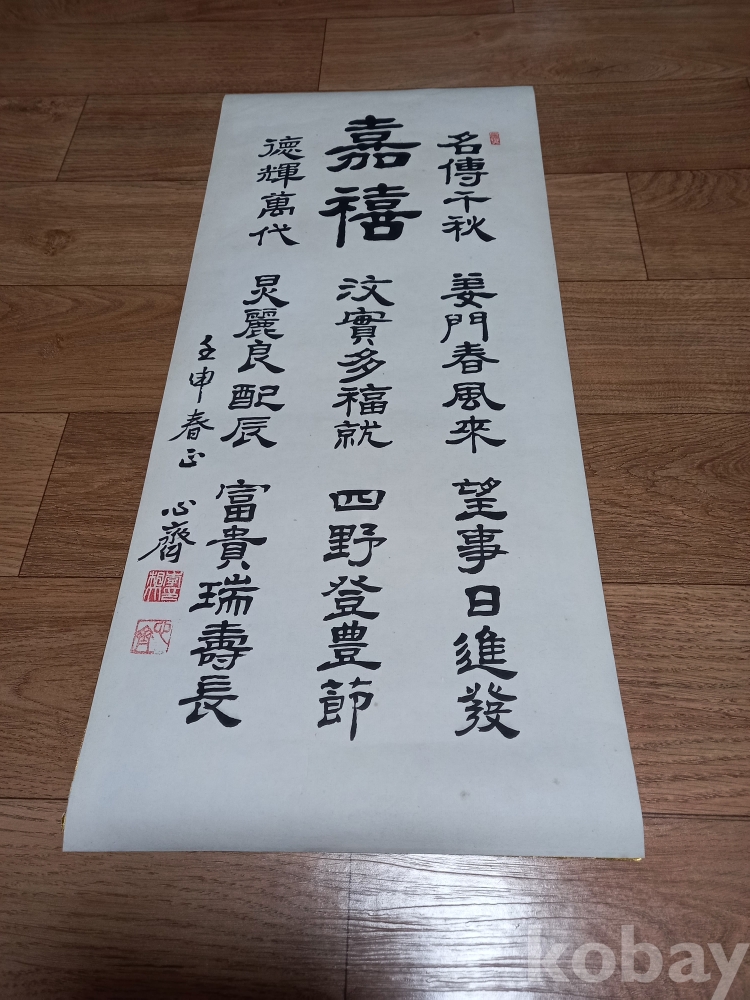 名傳千秋 姜門春風來 望事日進發
嘉禧 汶實多福就 四野登豊節
德輝萬代 炅麗良配辰 富貴瑞壽長
壬申春正 心齋
kobay